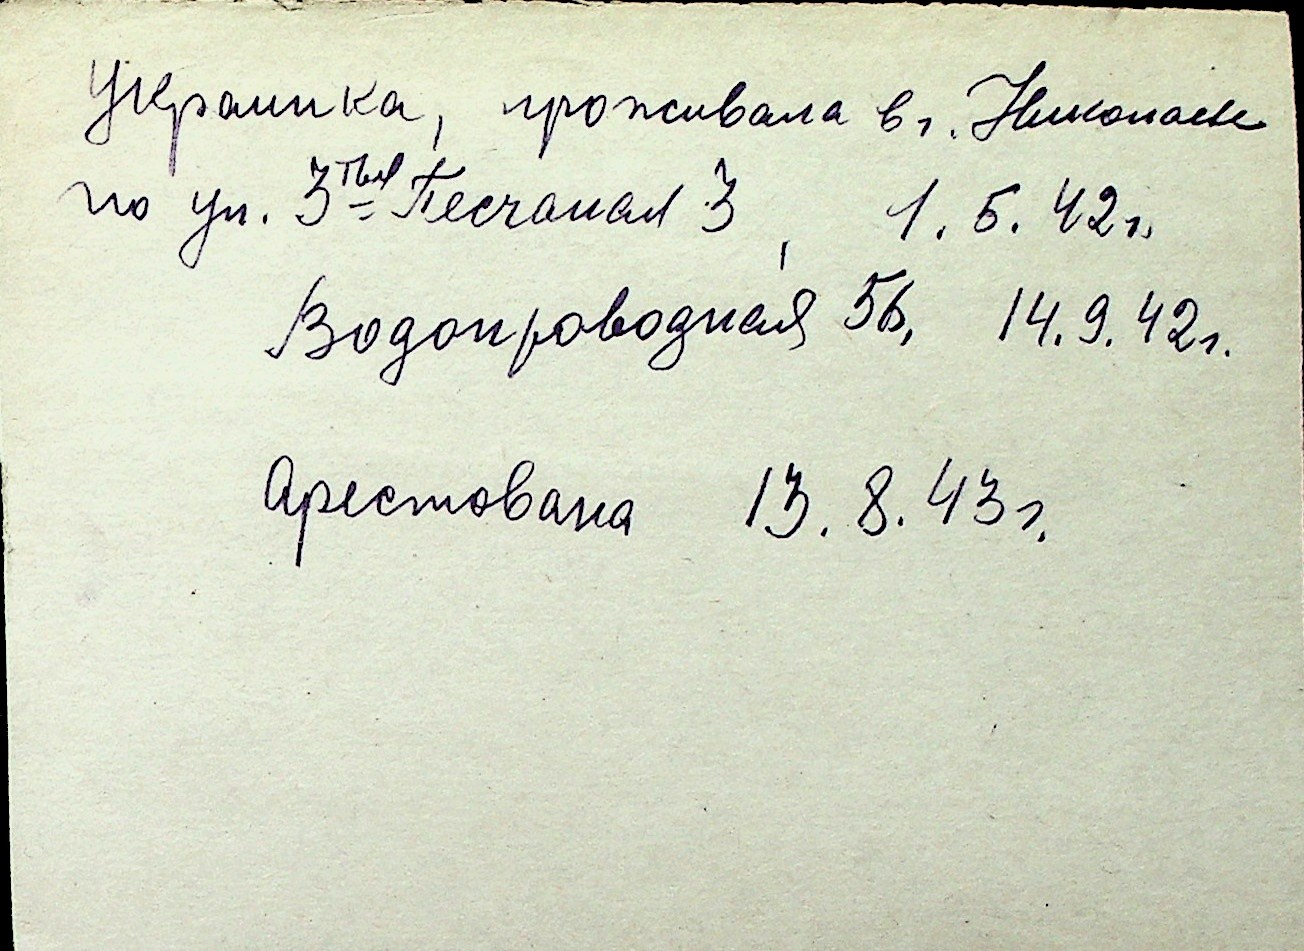 Украинка, проживала в г. Николаеве
по ул. 3тья Песчаная 3, 1.5.42г.
Водопроводная 5б, 14.9.42г.
Арестована 13.8.43г.